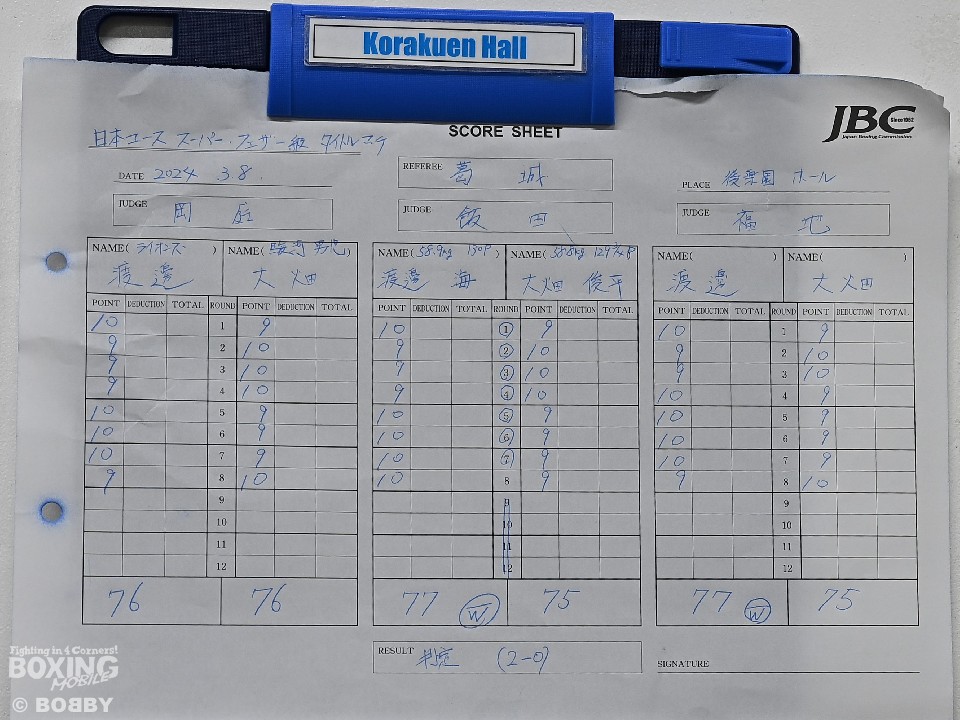 Korakuen Hall
JBC Since1952
Japan Boxing Commission
SCORE SHEET
日本ユース スーパー・フェザー級 タイトルマッチ
DATE 2024 3.8.
REFEREE 葛城
PLACE 後楽園ホール
JUDGE
JUDGE 飯田
JUDGE 福地
NAME( ライオンズ ) NAME( 駿河男児 ) NAME( 58.9kg 130P ) NAME( 58.8kg ) NAME( ) NAME( )
渡邊 大畑 渡邊 海 大畑 俊平 渡邊 大畑
POINT DEDUCTION TOTAL ROUND POINT DEDUCTION TOTAL POINT DEDUCTION TOTAL ROUND POINT DEDUCTION TOTAL POINT DEDUCTION TOTAL ROUND POINT DEDUCTION TOTAL
10 1 9 10 1 9 10 1 9
9 2 10 9 2 10 9 2 10
9 3 10 9 3 10 9 3 10
9 4 10 10 4 10 10 4 9
10 5 9 10 5 9 10 5 9
10 6 9 10 6 9 10 6 9
10 7 9 10 7 9 10 7 9
9 8 10 10 8 9 9 8 10
9 9 9
10 10 10
11 11 11
12 12 12
76 76 77 W 75 77 W 75
RESULT 判定 (2-0)
SIGNATURE
Fighting in 4 Corners!
BOXING
MOBILE
© BOBBY